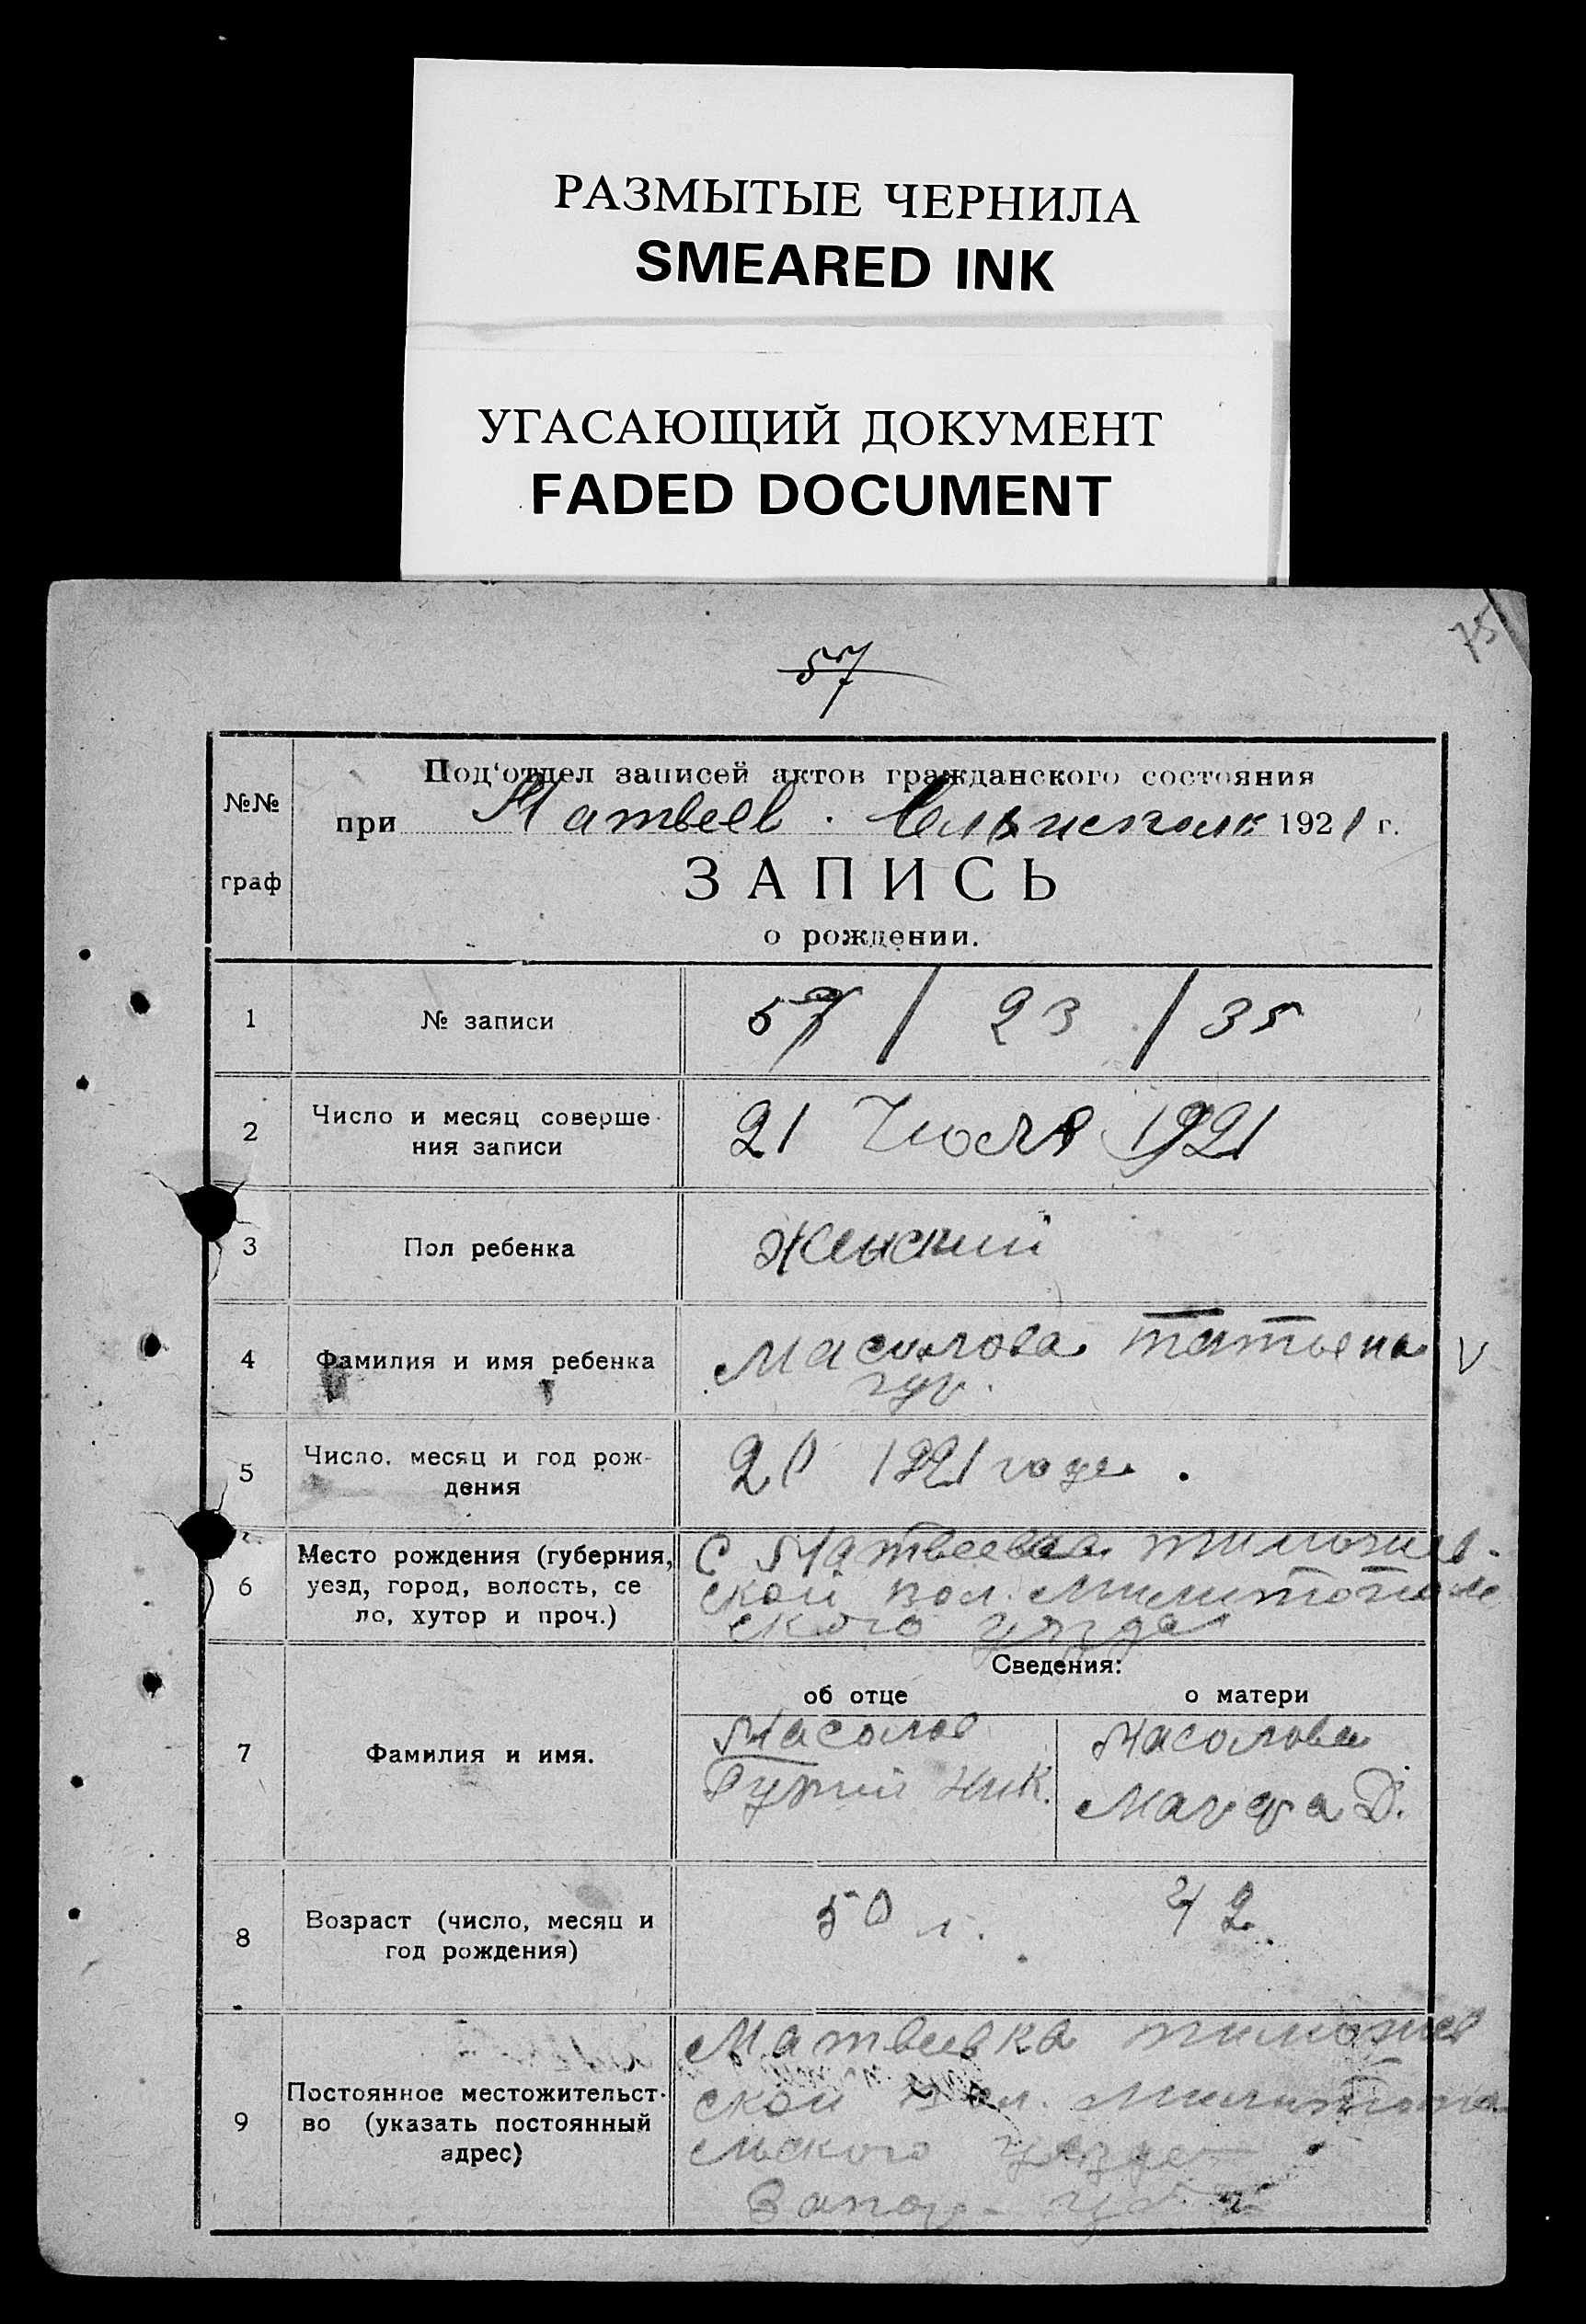 РАЗМЫТЫЕ ЧЕРНИЛА
SMEARED INK
УГАСАЮЩИЙ ДОКУМЕНТ
FADED DOCUMENT
75
57
№№ граф
Под‘отдел записей актов гражданского состояния
при Матвеев. 1921 г.
ЗАПИСЬ
о рождении.
1 № записи 57 / 23 / 35
2 Число и месяц соверше-
ния записи 21 Июля 1921
3 Пол ребенка Женский
4 Фамилия и имя ребенка Масолова Татьяна V
гур.
5 Число, месяц и год рож-
дения 20 1921 года.
6 Место рождения (губерния,
уезд, город, волость, се
ло, хутор и проч.)
С Матвеевка тимошев-
ской вол. Милитополь
ского уезда
Сведения:
об отце о матери
7 Фамилия и имя.
Масолов
Гурий Ник.
Масолова
Марфа Д.
8 Возраст (число, месяц и
год рождения)
50 л. 42.
9 Постоянное местожительст-
во (указать постоянный
адрес)
Матвеевка тимошев
ской вол. Милитопо
льского уезда
Запор- губ